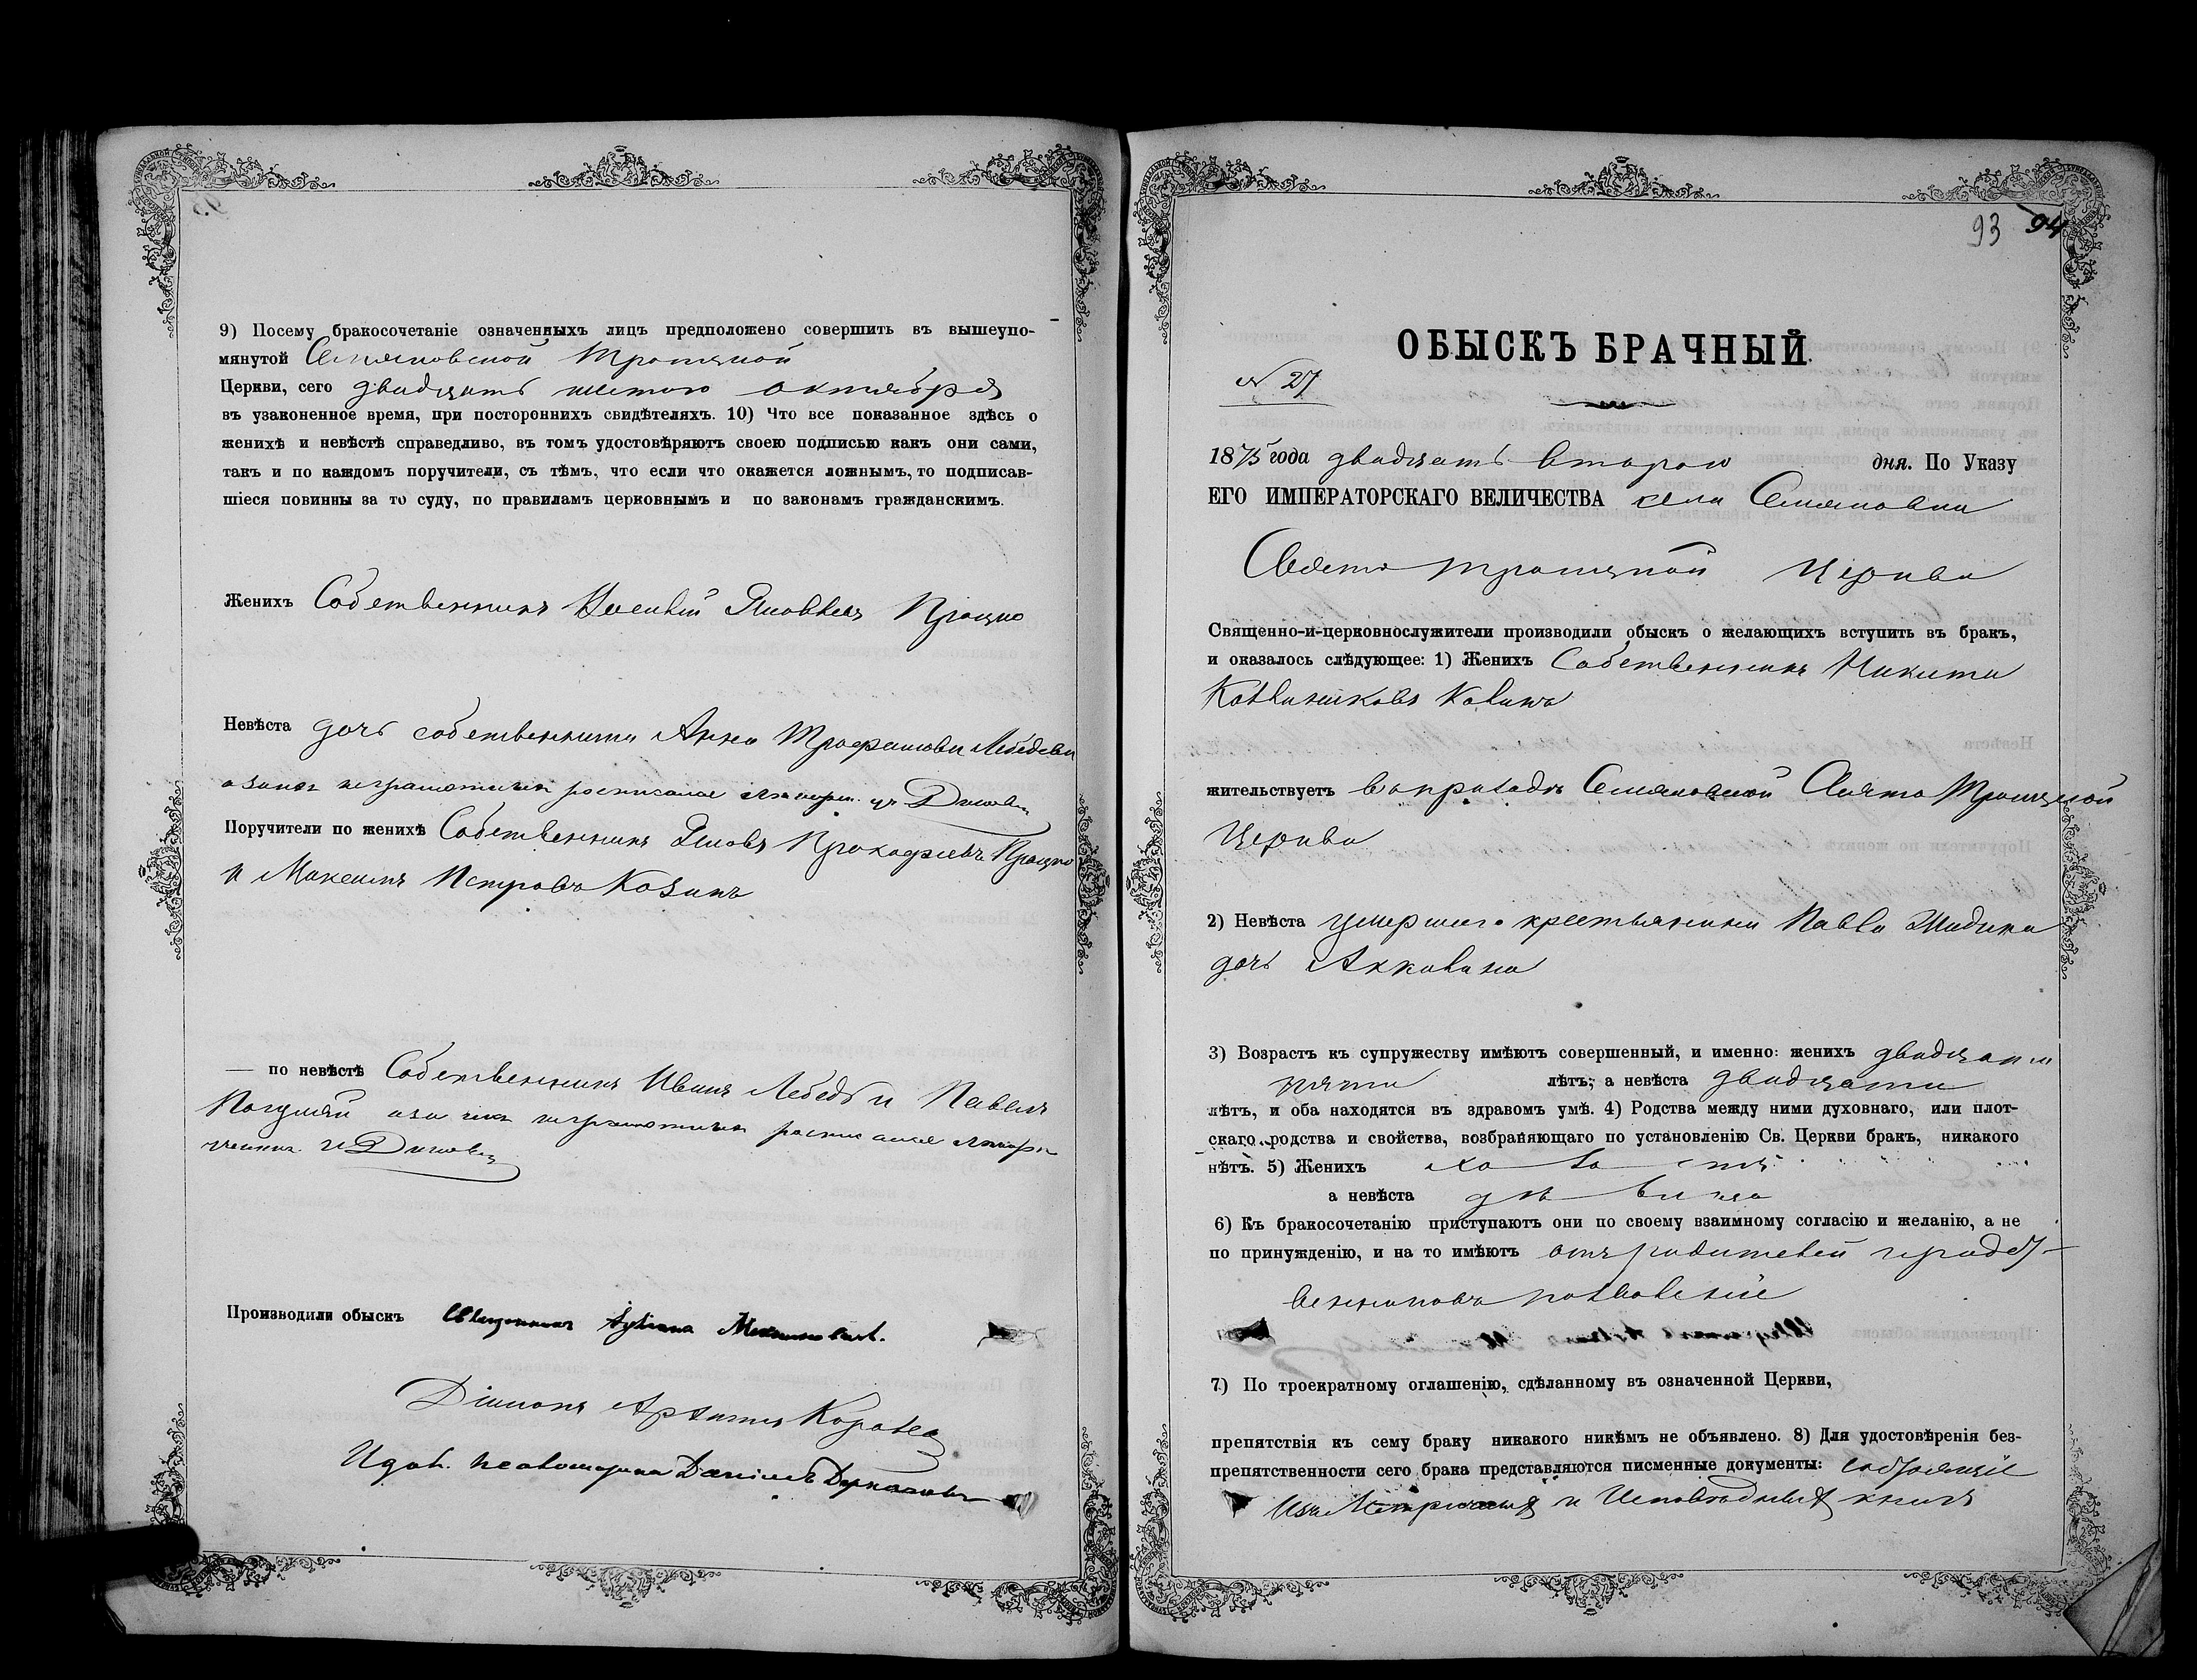 9) Посему бракосочетаніе означенныхъ лицъ предположено совершить въ вышеупо-
мянутой Семяновской Троицкой
Церкви, сего двадцать шестого октября
въ узаконенное время, при постороннихъ свидѣтеляхъ. 10) Что все показанное здѣсь о
женихѣ и невѣстѣ справедливо, въ томъ удостовѣряютъ своею подписью какъ они сами,
такъ и по каждомъ поручители, съ тѣмъ, что если что окажется ложнымъ, то подписав-
шіеся повинны за то суду, по правиламъ церковнымъ и по законамъ гражданскимъ.
Женихъ Собственникъ Яковлевъ Процко
Невѣста дочь собственника Анна Трофимова Лебедева
а за неграмотныхъ росписался
Поручители по женихѣ Собственникъ Яковъ Прокофьевъ Процко
и Максимъ Петровъ Козинъ
— по невѣстѣ Собственникъ Иванъ Лебедь и Павелъ
а за нихъ неграмотныхъ росписался
Производили обыскъ Священникъ
Діаконъ
И. д. пс. Даніилъ
93 94
ОБЫСКЪ БРАЧНЫЙ.
№ 27
1875 года двадцать второго дня. По Указу
ЕГО ИМПЕРАТОРСКАГО ВЕЛИЧЕСТВА села Семяновки
Свято Троицкой Церкви
Священно-и-церковнослужители производили обыскъ о желающихъ вступить въ бракъ,
и оказалось слѣдующее: 1) Женихъ Собственникъ Никита
жительствуетъ въ приходѣ Семяновской Свято Троицкой
Церкви
2) Невѣста умершего крестьянина Павла
дочь Акилина
3) Возрастъ къ супружеству имѣютъ совершенный, и именно: женихъ двадцати
пяти лѣтъ; а невѣста двадцати
лѣтъ, и оба находятся въ здравомъ умѣ. 4) Родства между ними духовнаго, или плот-
скаго родства и свойства, возбраняющаго по установленію Св. Церкви бракъ, никакого
нѣтъ. 5) Женихъ холостъ
а невѣста дѣвица
6) Къ бракосочетанію приступаютъ они по своему взаимному согласію и желанію, а не
по принужденію, и на то имѣютъ отъ родителей и родст-
венниковъ позволеніе
7) По троекратному оглашенію, сдѣланному въ означенной Церкви,
препятствія къ сему браку никакого никѣмъ не объявлено. 8) Для удостовѣренія без-
препятственности сего брака представляются писменные документы:
изъ Метрическихъ и Исповѣдныхъ книгъ